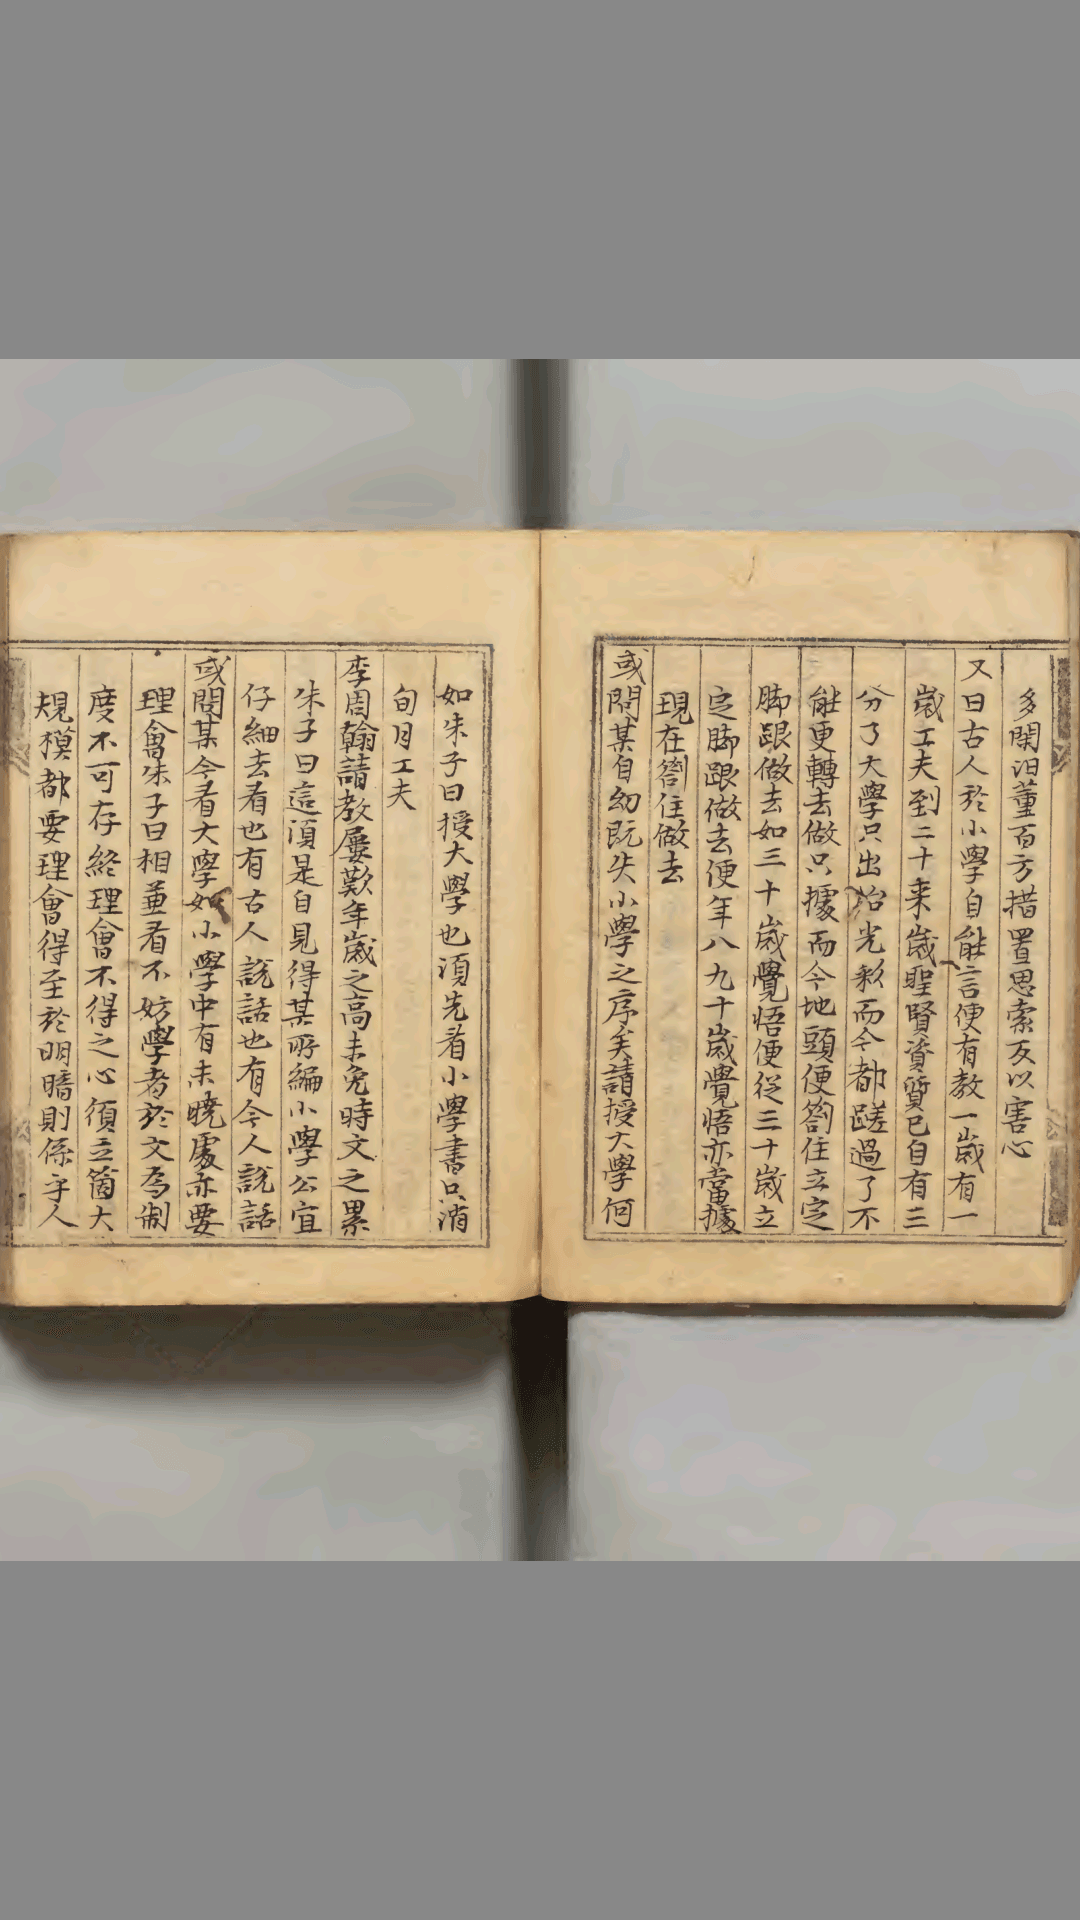 多閑汨董百方措置思索反以害心
又曰古人於小學自能言便有教一歲有一
歲工夫到二十來歲聖賢資質已自有三
分了大學只出治光彩而今都蹉過了不
能更轉去做只據而今地頭便劄住立定
脚跟做去如三十歲覺悟便從三十歲立
定脚跟做去便年八九十歲覺悟亦當據
現在劄住做去
或問某自幼既失小學之序矣請授大學何
如朱子曰授大學也須先看小學書只消
旬月工夫
李周翰請教屢歎年歲之高未免時文之累
朱子曰這須是自見得某所編小學公宜
仔細去看也有古人說話也有今人說話
或問某今看大學如小學中有未曉處亦要
理會朱子曰相並看不妨學者於文爲制
度不可存終理會不得之心須立箇大
規模都要理會得至於明暗則係乎人